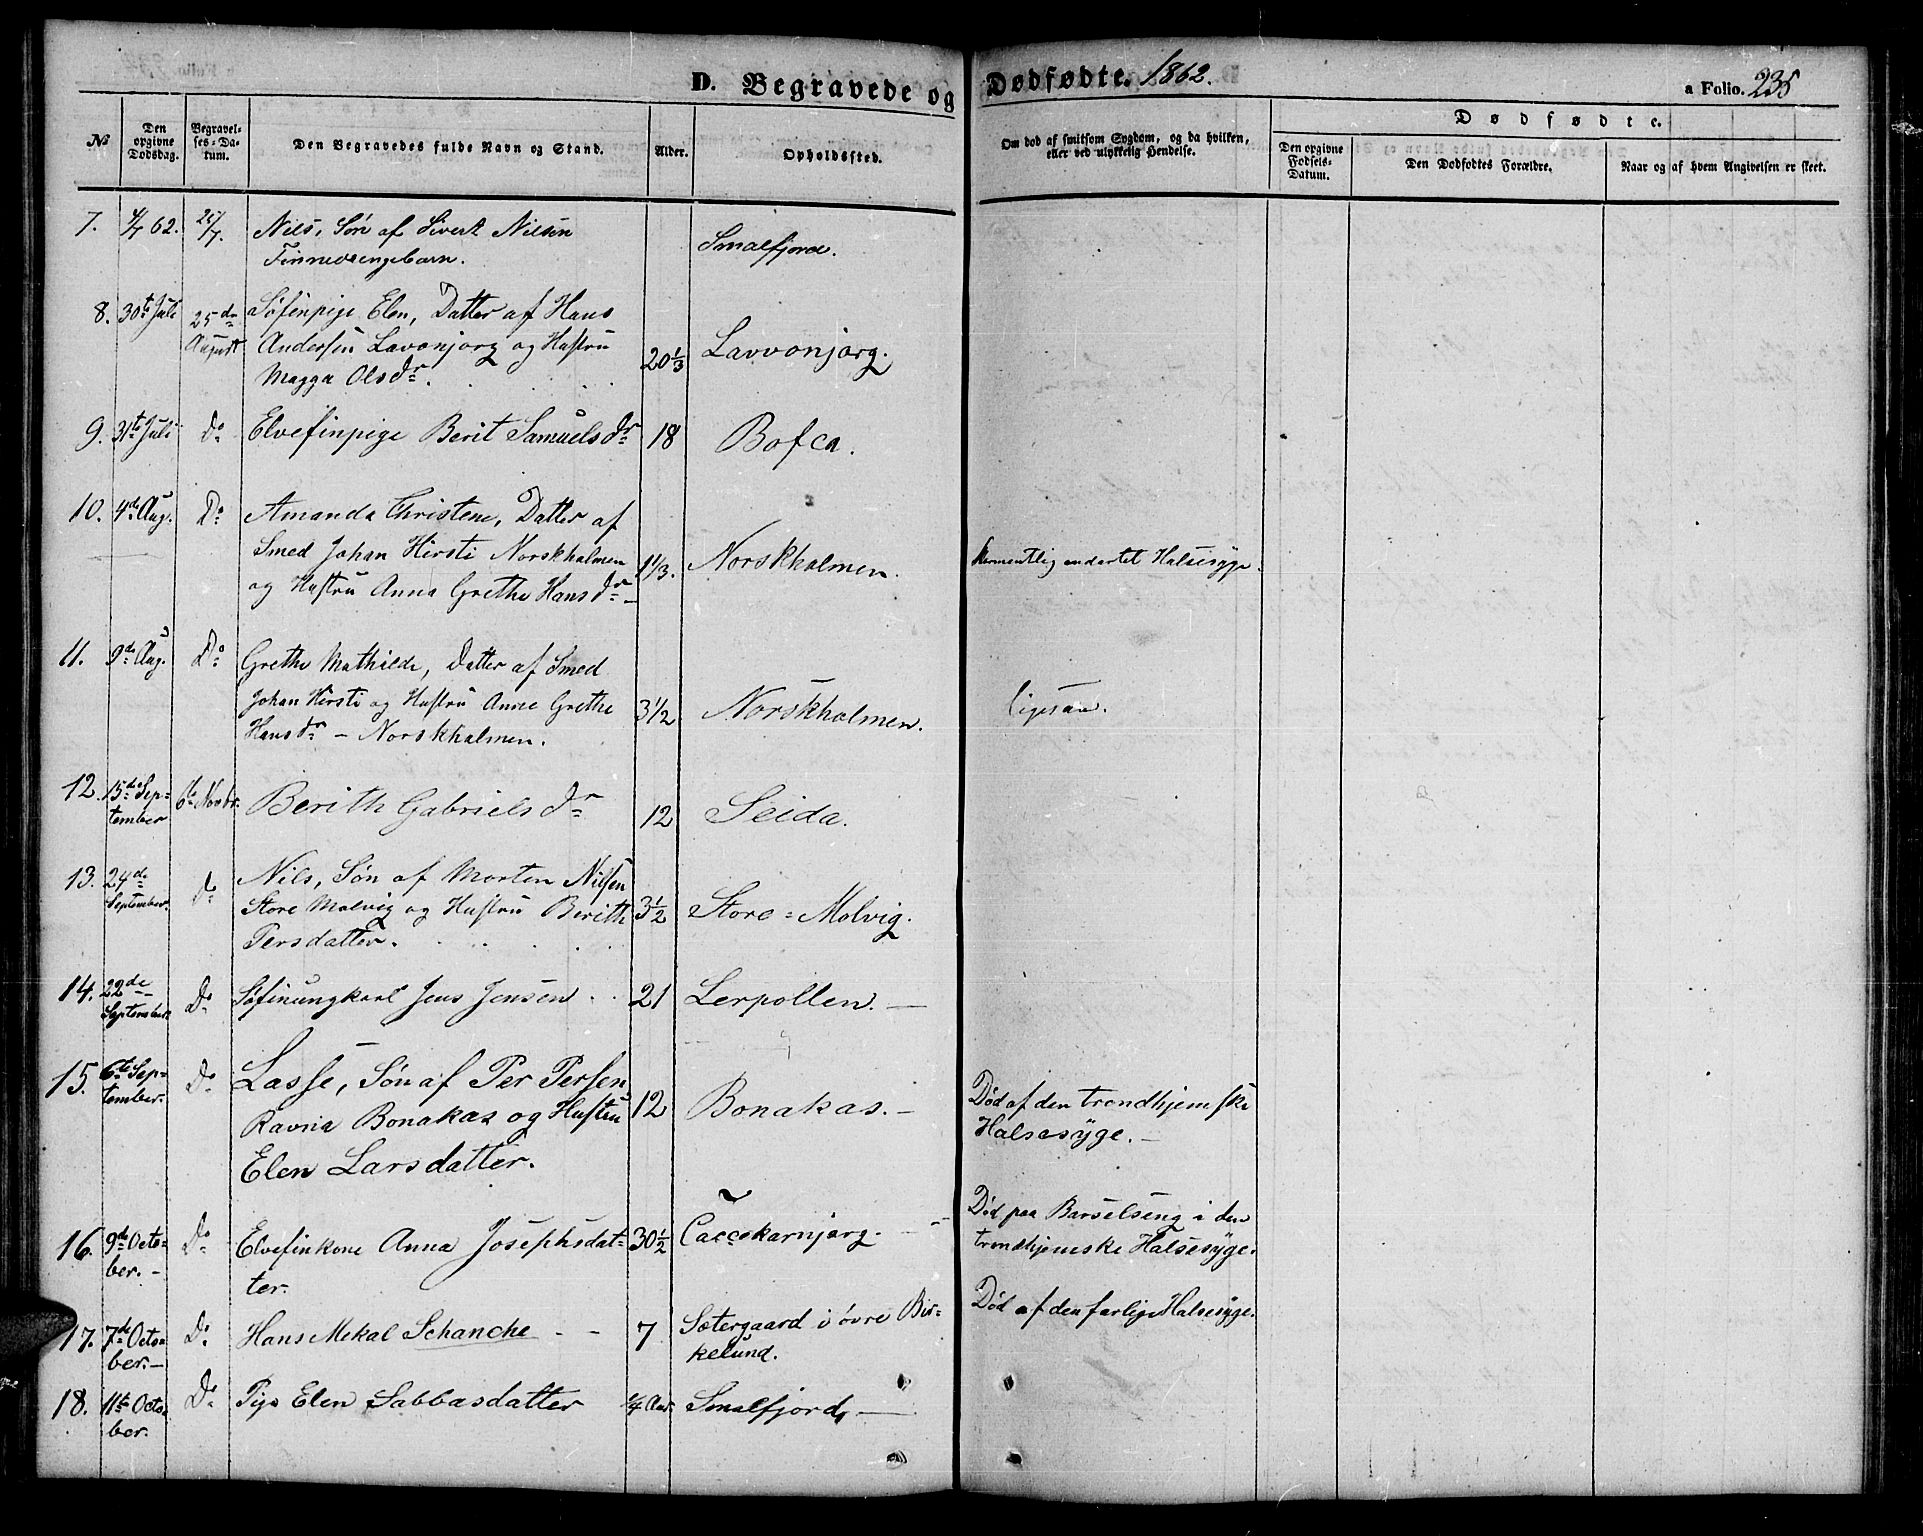 D. Begravede og Dødfødte. 1862.
a Folio. 235
No
Den opgivne Dødsdag.
Begravelses-Datum.
Den Begravedes fulde Navn og Stand.
Alder.
Opholdssted.
Om død af smitsom Sygdom, og da hvilken, eller ved ulykkelig Hendelse.
Dødfødte.
Den opgivne Fødsels-Datum.
Den Dødfødtes Forældre.
Naar og af hvem Angivelsen er skeet.
7. 4/7 62. Nils, Søn af Sivert Nilsen
Smalfjord.
8. 30te Juli 25de August Søfinpige Elen, Datter af Hans
Andersen Lavonjorg og Hustru 20 1/3 Lavvonjarg.
Magga Olsdr.
9. 31te Juli Do Elvefinpige Berit Samuelsdr 18 Bofca.
10. 4de Aug. Do Amanda Christene, Datter af
Smed Johan Hirsti Norskholmen 1 1/3. Norskholmen.
og Hustru Anna Grethe Hansdr - Halsesyge.
11. 9de Aug. Do Grethe Mathilde, Datter af Smed
Johan Hirsti og Hustru Anne Grethe 3 1/2 Norskholmen. ligesaa.
Hansdr - Norskholmen.
12. 15de September 6te Novbr. Berith Gabrielsdr 12 Seida.
13. 24de September. Do Nils, Søn af Morten Nilsen
Store Molvig og Hustru Berith 3 1/2 Store-Molvig.
Persdatter.
14. 22de September Do Søfinungkarl Jens Jensen 21 Lerpollen. -
15. 6te September. Do Lasse, Søn af Per Persen
Ravna Bonakas og Hustru 12 Bonakas. - Død af den trondhjemske
Elen Larsdatter. Halsesyge. -
16. 9de October. - Do Elvefinkone Anna Josephsdat- 30 1/2 Caccskarnjarg. - Død paa Barselseng i den
ter. trondhjemske Halsesyge.
17. 7de October. - Do Hans Mekal Schanche - - 7 Sætergaard i øvre Bir- Død af den farlige Halsesyge.
kelund.
18. 11te October. Do Pige Elen Sabbasdatter 1/4 Aar. Smalfjord. -